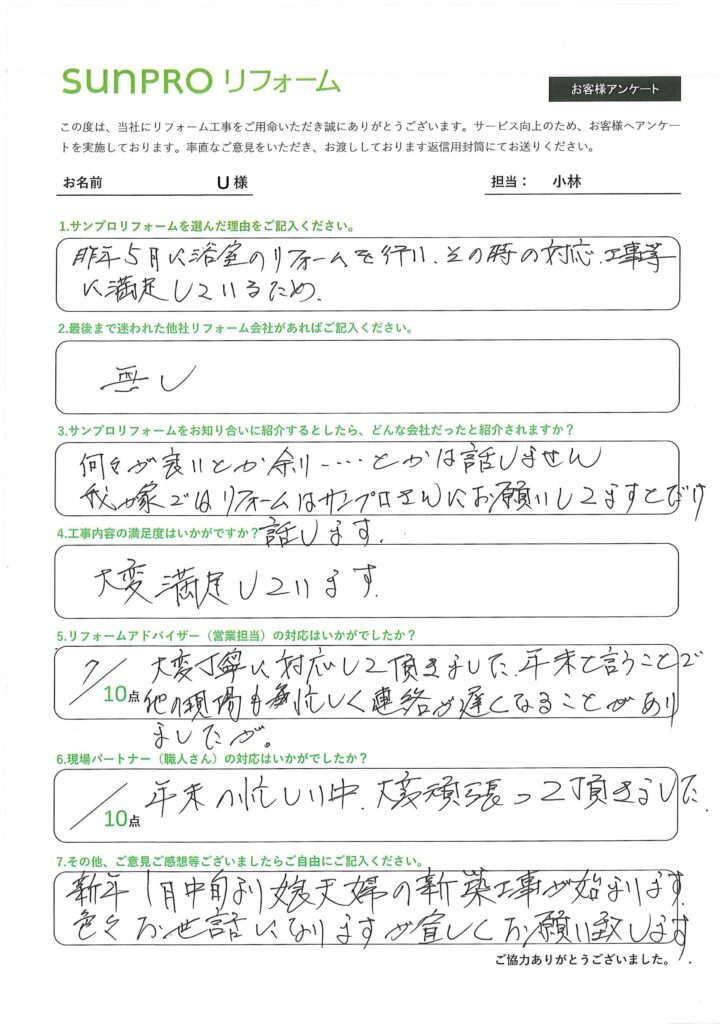 SUNPRO リフォーム
お客様アンケート
この度は、当社にリフォーム工事をご用命いただき誠にありがとうございます。サービス向上のため、お客様へアンケー
トを実施しております。率直なご意見をいただき、お渡ししております返信用封筒にてお送りください。
お名前 U 様 担当： 小林
1.サンプロリフォームを選んだ理由をご記入ください。
昨年5月に浴室のリフォームを行い、その時の対応、工事等
に満足しているため.
2.最後まで迷われた他社リフォーム会社があればご記入ください。
無し
3.サンプロリフォームをお知り合いに紹介するとしたら、どんな会社だったと紹介されますか？
何々が良いとか余り‥‥とかは話しません
我が家ではリフォームはサンプロさんにお願いしてますとだけ
話します.
4.工事内容の満足度はいかがですか？
大変満足しています.
5.リフォームアドバイザー（営業担当）の対応はいかがでしたか？
7／10点 大変丁寧に対応して頂きました.年末と言うことで
他の現場も忙しく連絡が遅くなることがあり
ましたが。
6.現場パートナー（職人さん）の対応はいかがでしたか？
／10点 年末の忙しい中、大変頑張って頂きました.
7.その他、ご意見ご感想等ございましたらご自由にご記入ください。
新年1月中旬より娘夫婦の新築工事が始まります.
色々お世話になりますが宜しくお願い致します.
ご協力ありがとうございました。